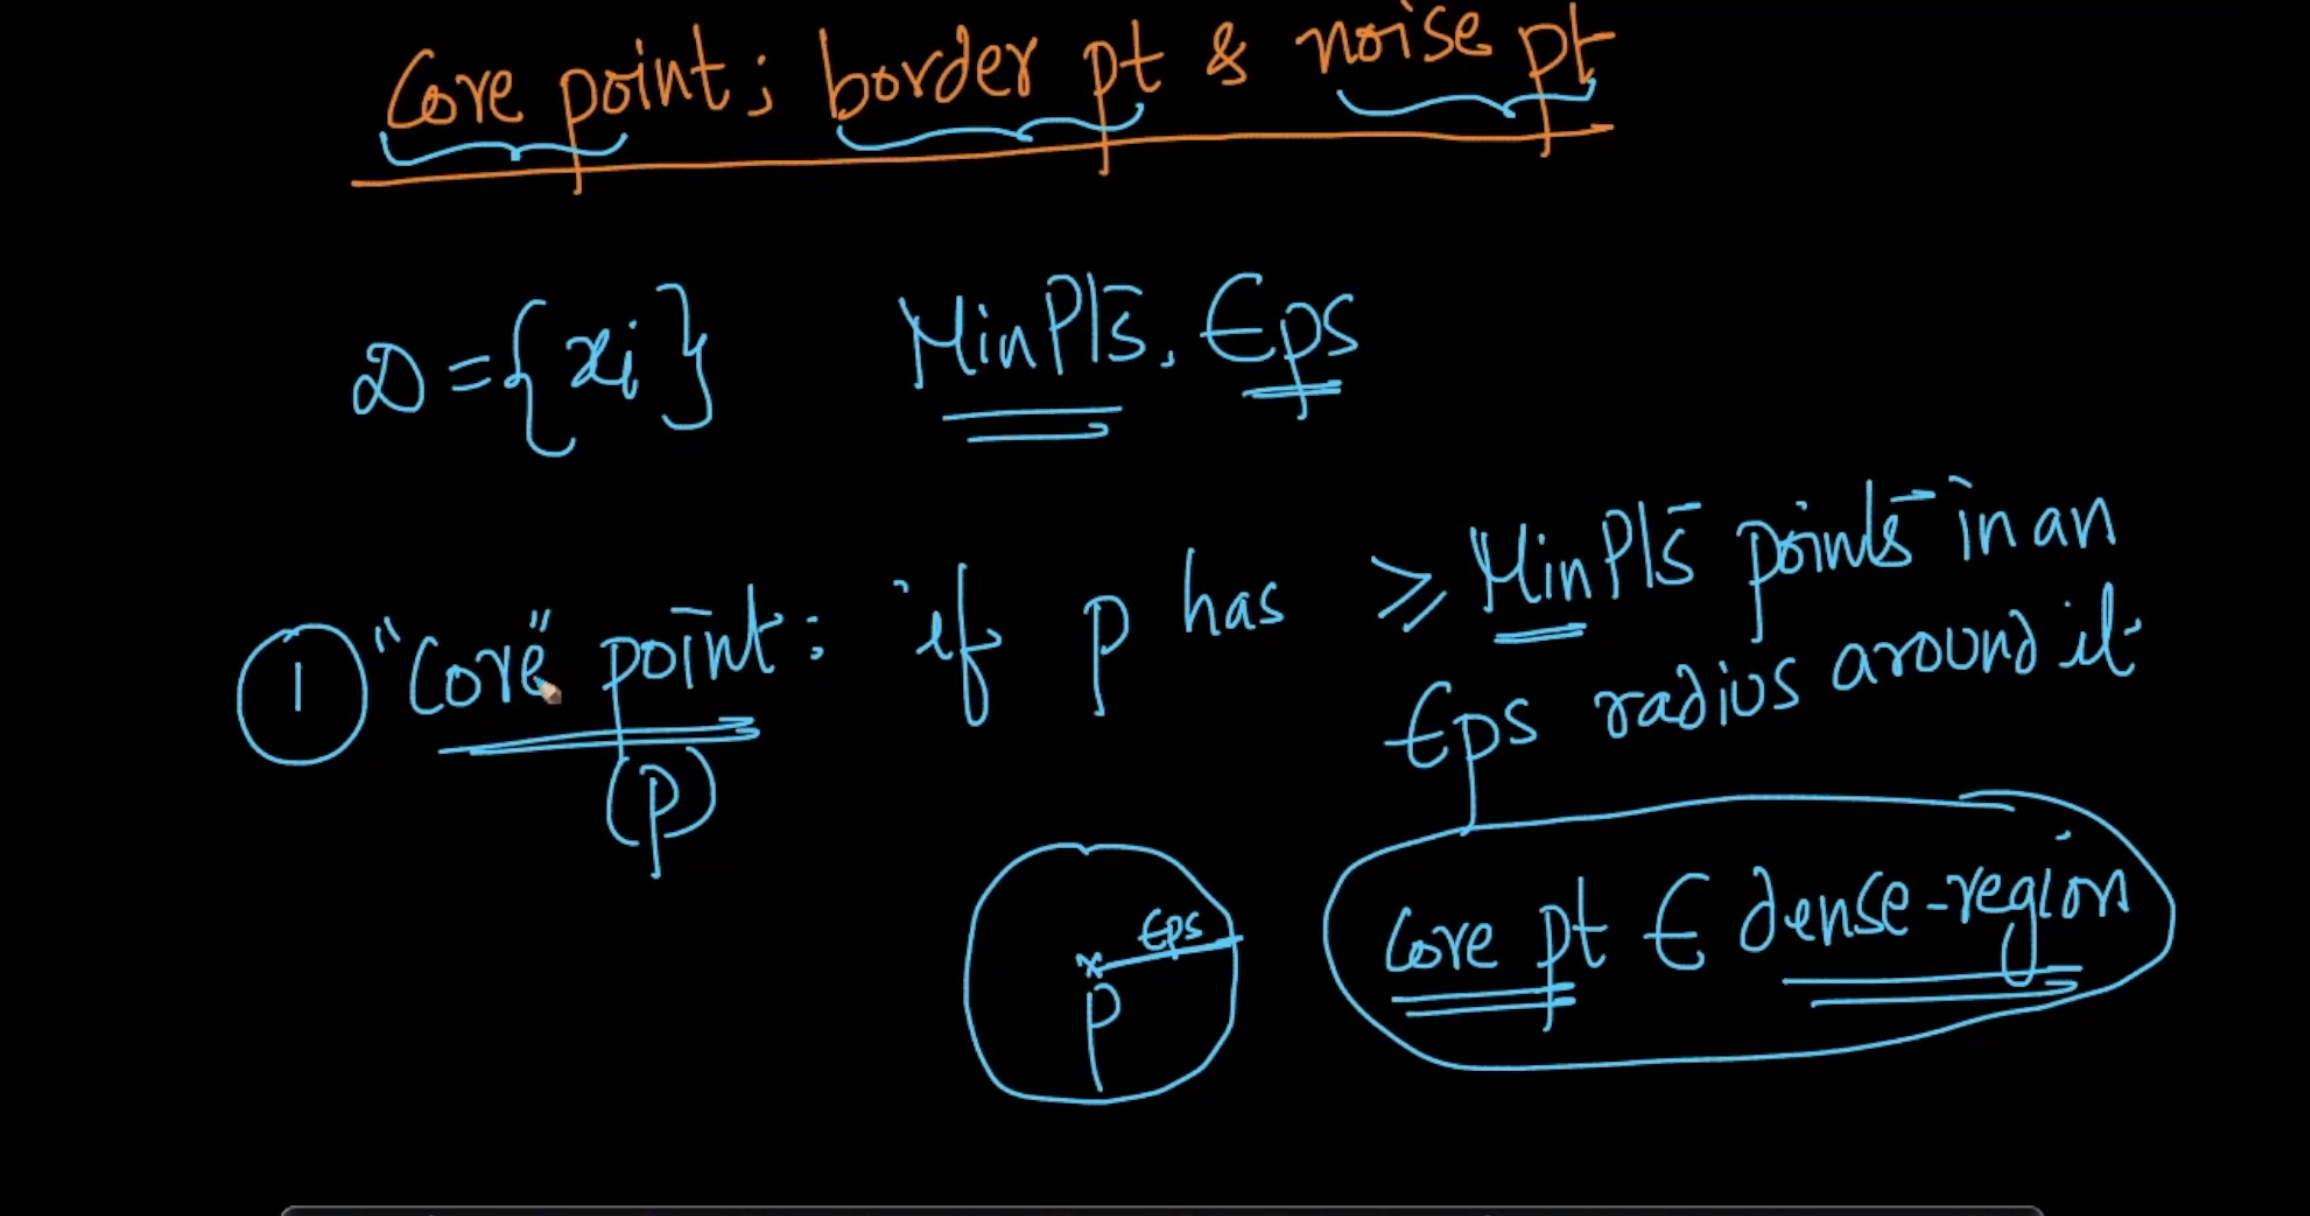 Core point; border pt & noise pt
D = {xi} MinPts, Eps
① "Core" point: if p has ≥ MinPts points in an
Eps radius around it
(p)
Eps
P
Core pt ∈ dense-region